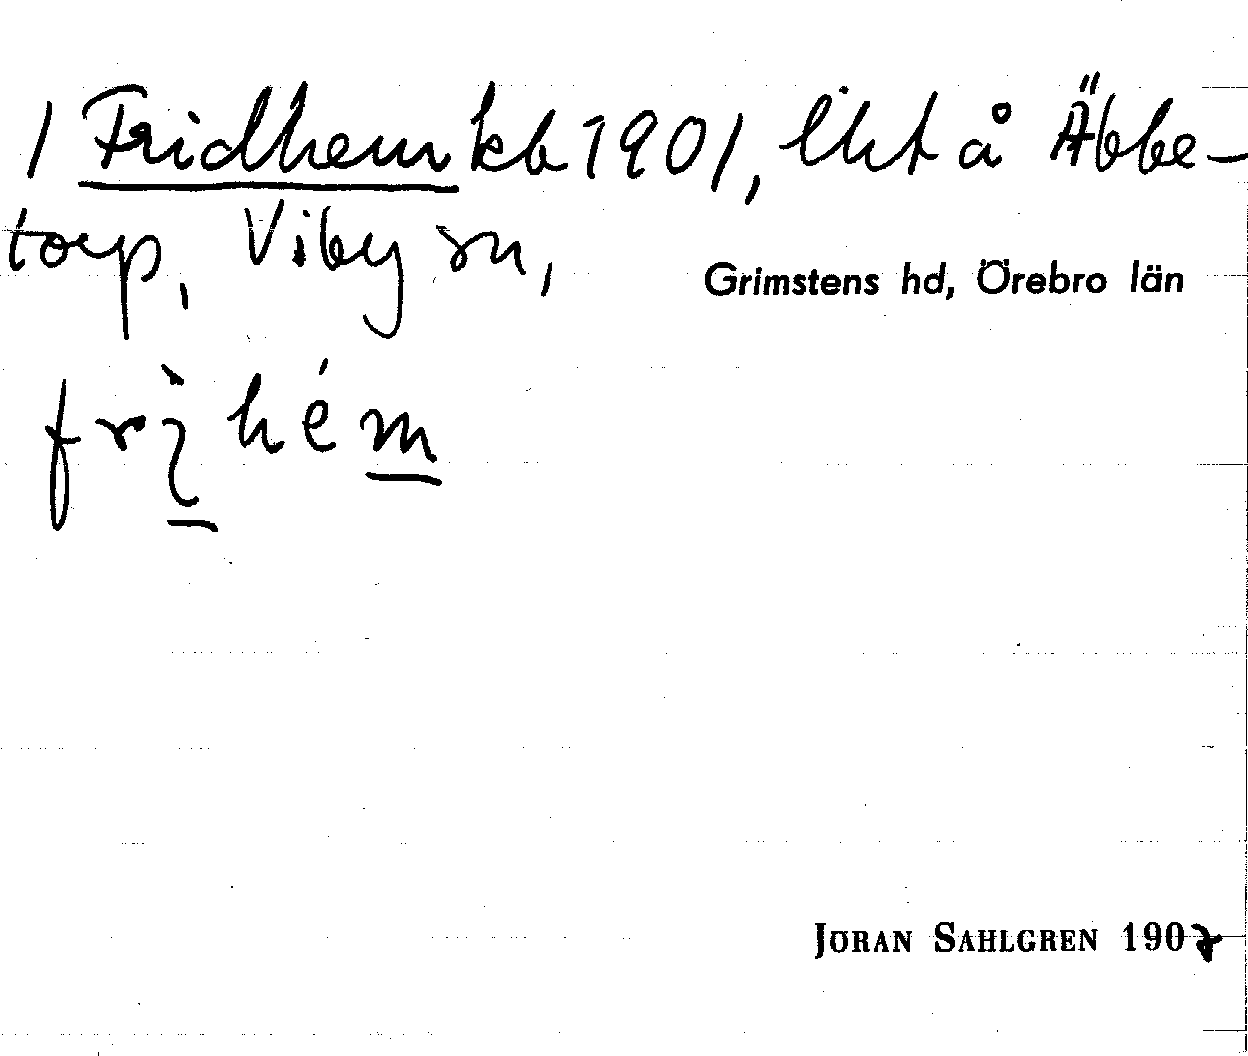 / Fridhem kb 1901, lht å Äbbe-
torp, Viby sn,
Grimstens hd, Örebro län
JÖRAN SAHLGREN 1907